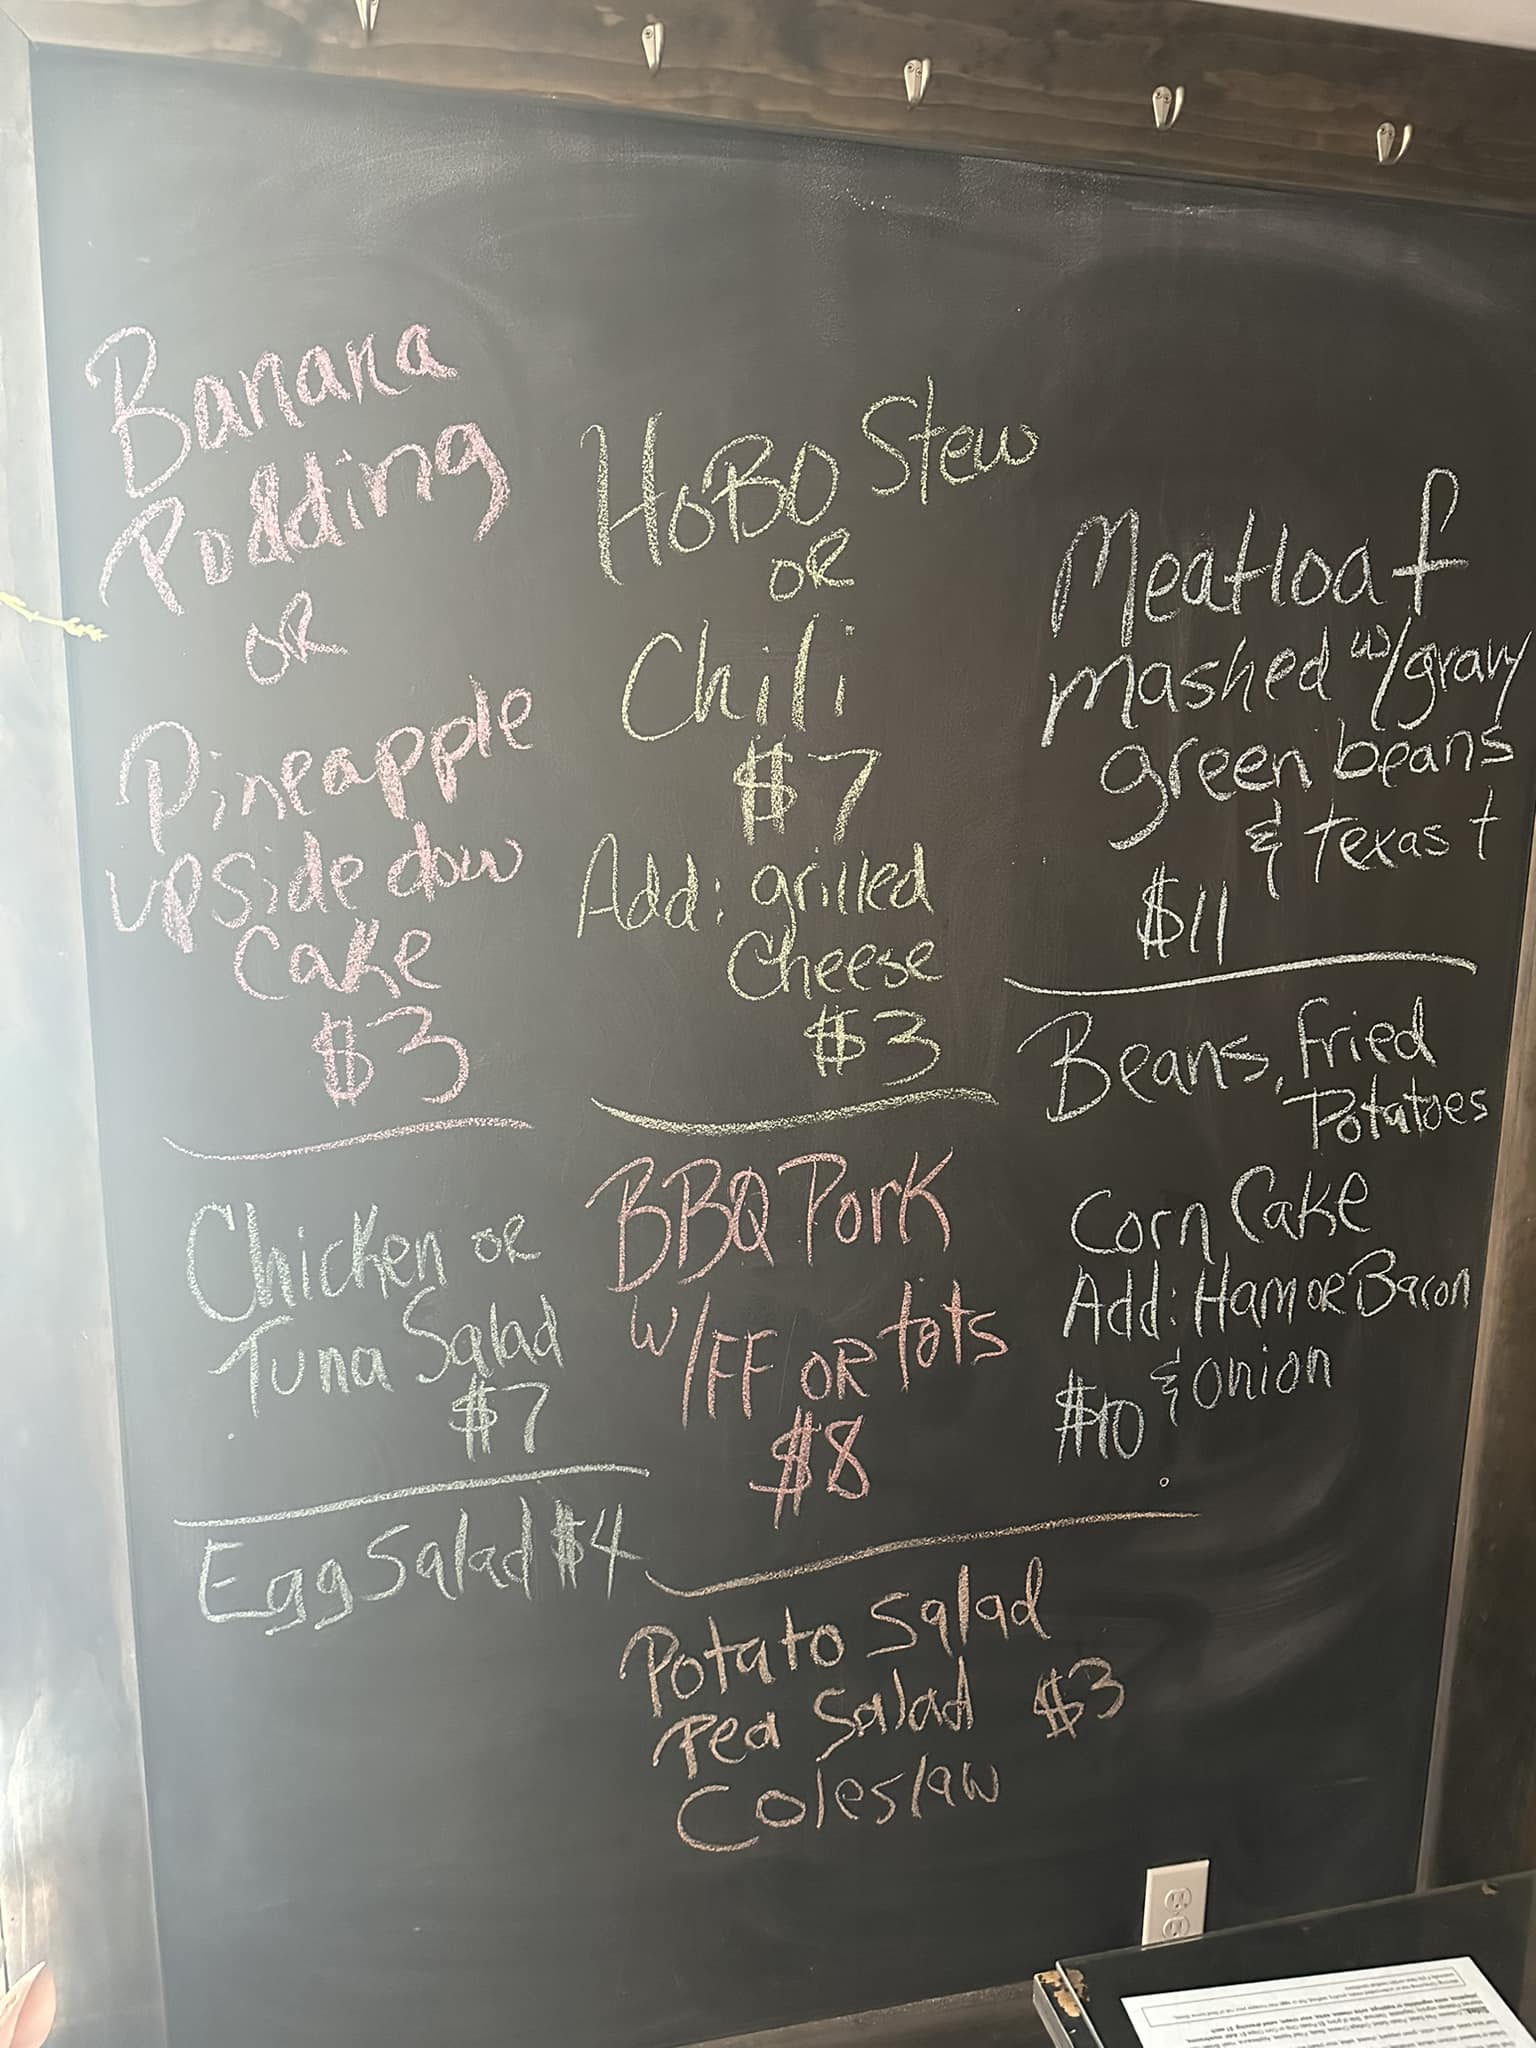 Banana
Pudding
OR
Pineapple
upside dow
Cake
$3
Chicken OR
Tuna Salad
$7
Egg Salad $4
HoBO Stew
OR
Chili
$7
Add: grilled
Cheese
$3
BBQ Pork
w/FF OR tots
$8
Potato Salad
Pea Salad $3
Coleslaw
Meatloaf
mashed w/gravy
green beans
& Texas t
$11
Beans, Fried
Potatoes
Corn Cake
Add: Ham OR Bacon
& onion
$10